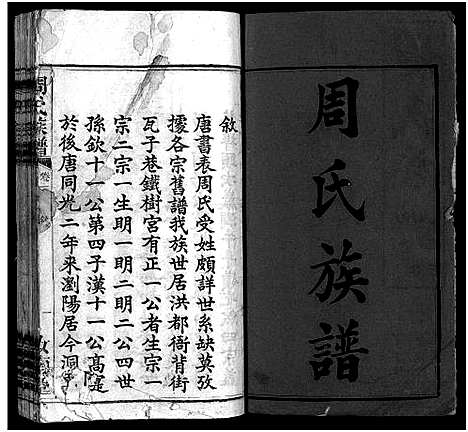 周氏族譜
敘
唐書表周氏受姓頗詳世系缺莫攷
據各宗舊譜我族世居洪都衙背街
瓦子巷鐵樹宮有正一公者生宗一
宗二宗一生明一明二明二公四世
孫欽十一公第四子漢十一公高是
於後唐同光二年来瀏陽居今洞
周氏族譜
卷